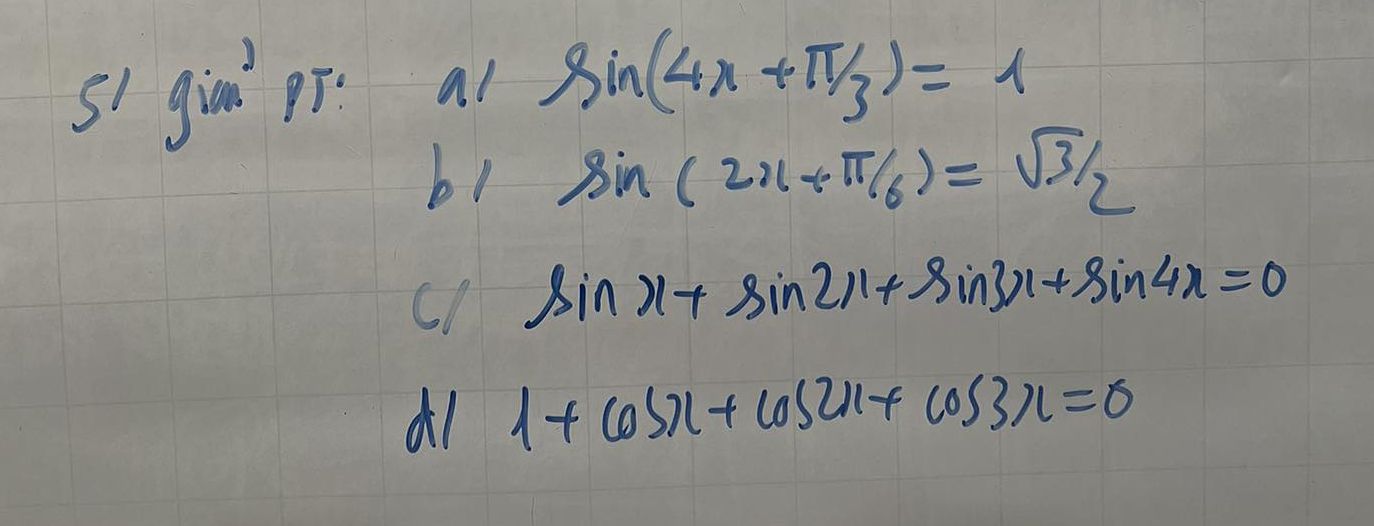 5/ giải PT: a/ sin(4x + π/3) = 1
b/ sin (2x + π/6) = √3/2
c/ sin x + sin2x + sin3x + sin4x = 0
d/ 1 + cosx + cos2x + cos3x = 0